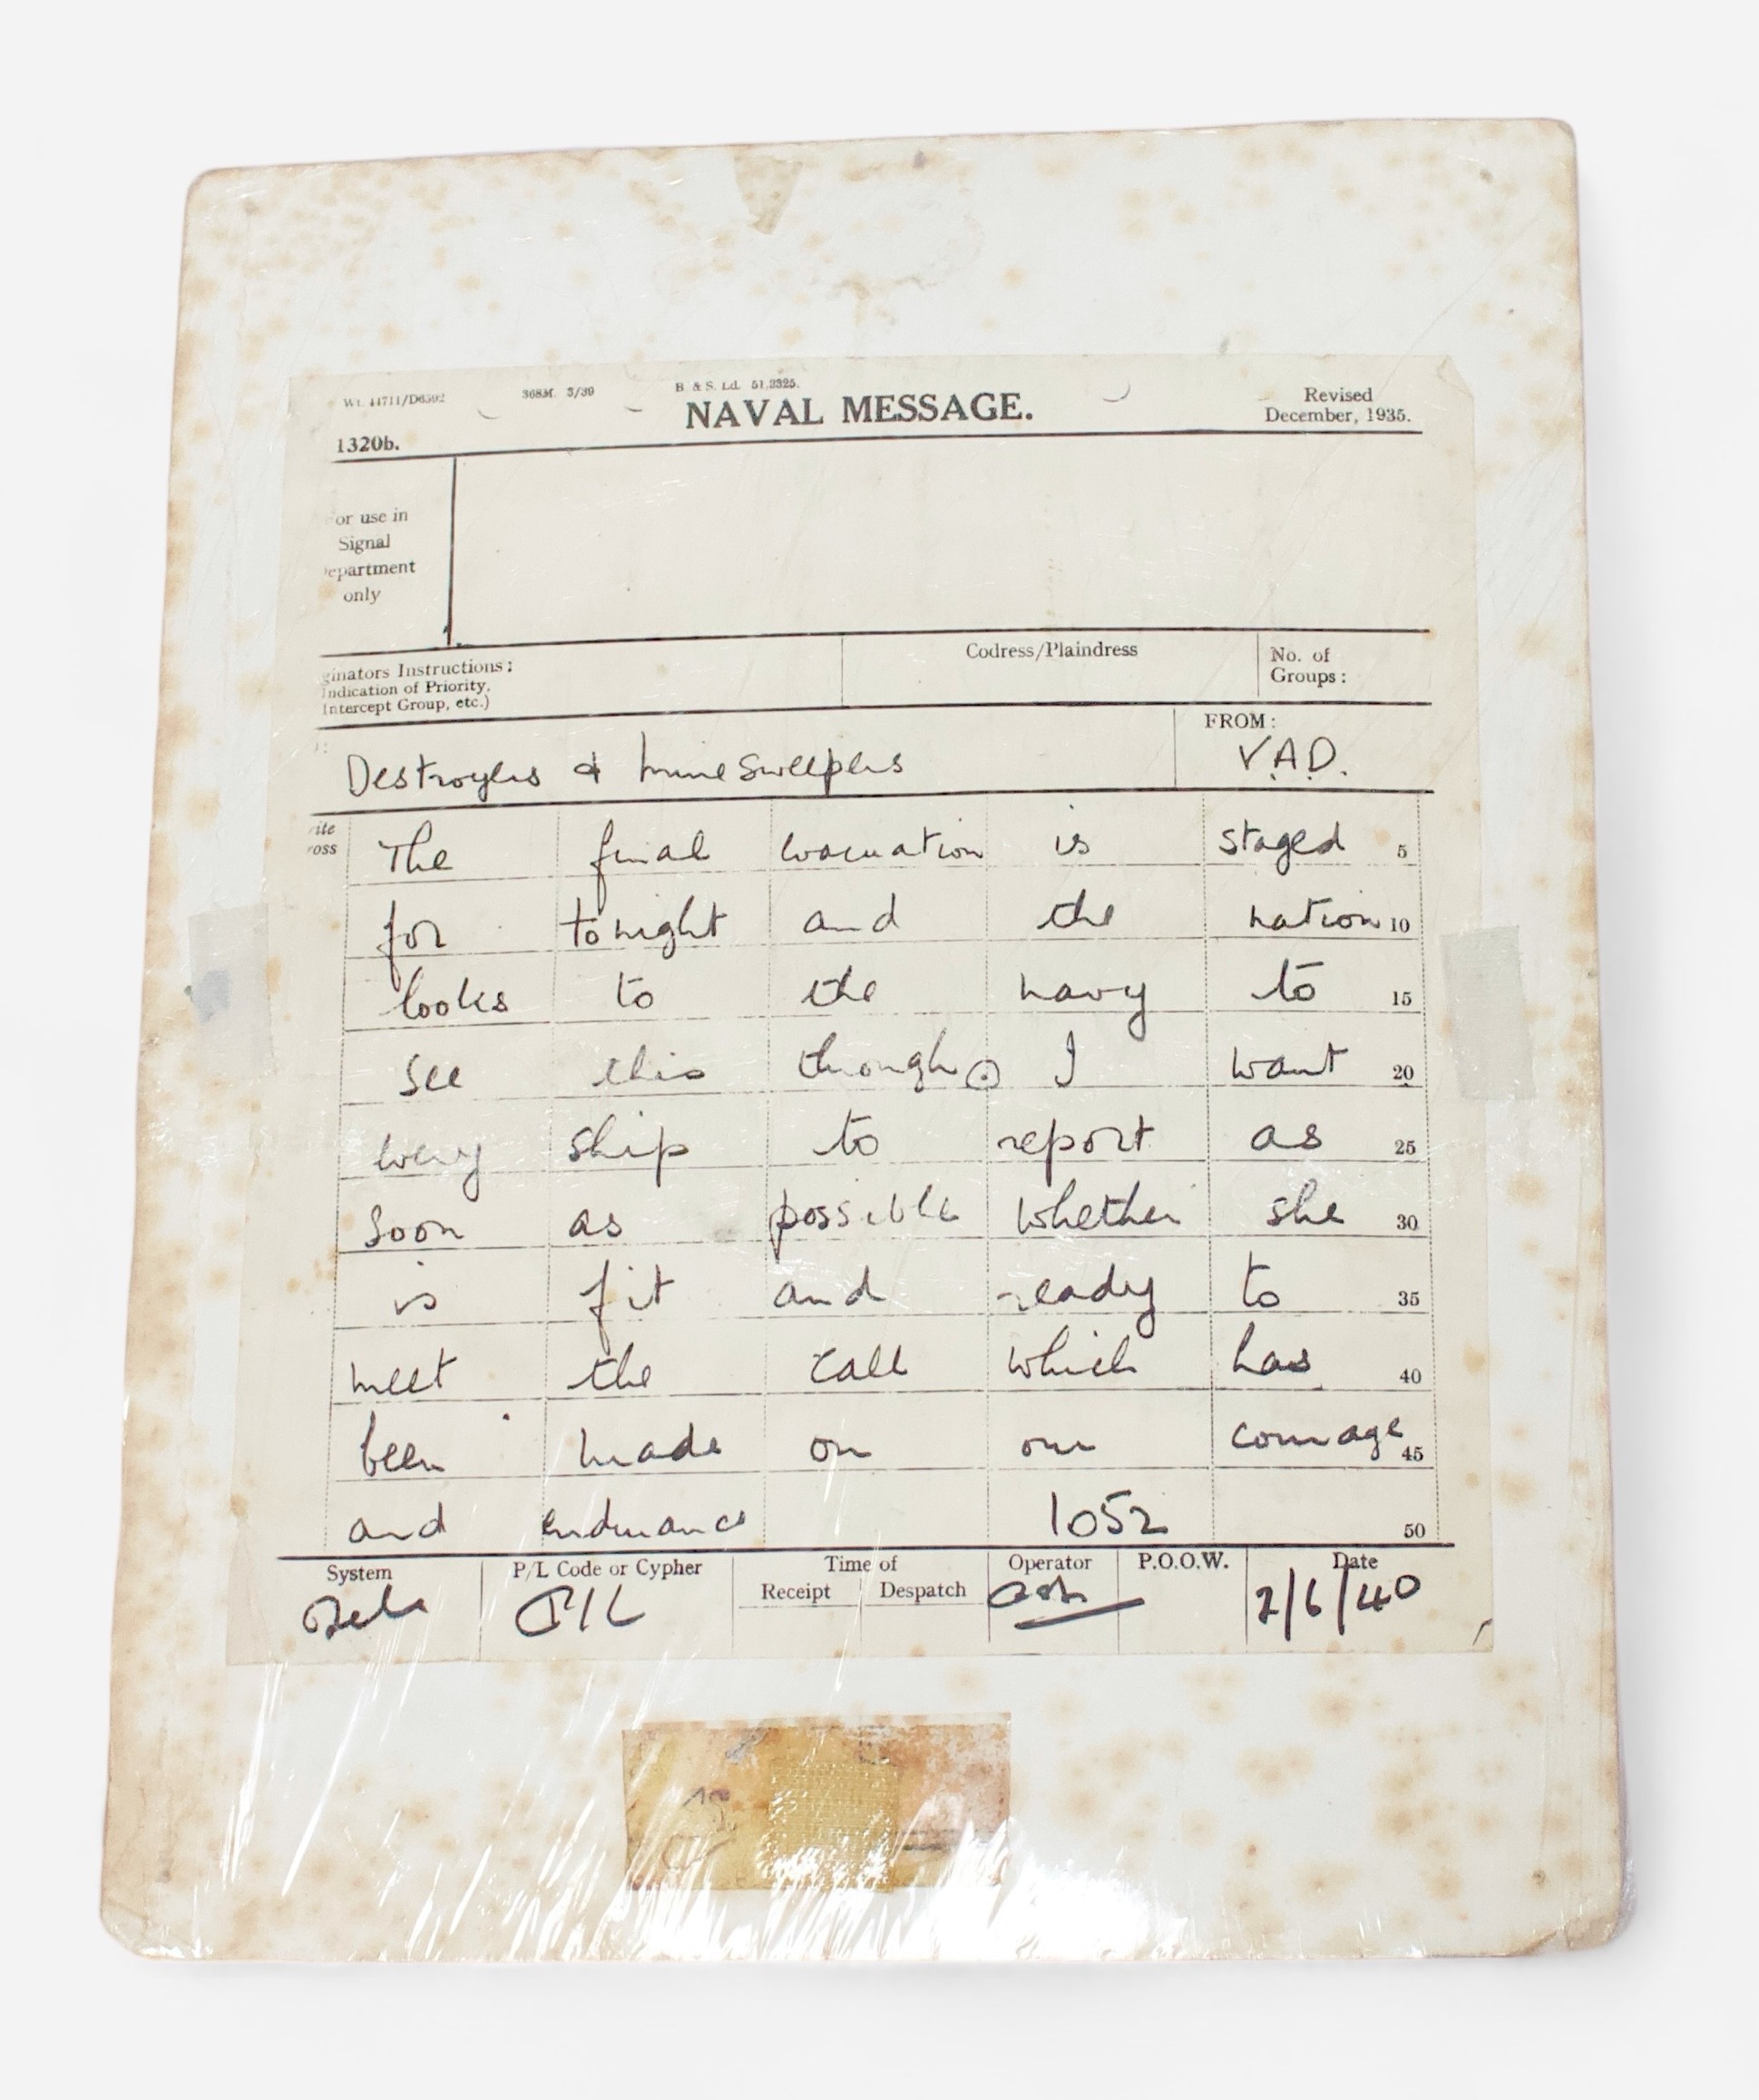 368M. 3/39 B & S. Ld. 51,3325.
NAVAL MESSAGE.
Revised
December, 1935.
1320b.
or use in
Signal
epartment
only
ginators Instructions:
Indication of Priority,
Intercept Group, etc.)
Codress/Plaindress
No. of
Groups:
FROM:
Destroyers & Minesweepers V.A.D.
ite
ross
The final evacuation is staged 5
for tonight and the nation 10
looks to the navy to 15
see this through. I want 20
every ship to report as 25
soon as possible whether she 30
is fit and ready to 35
meet the call which has 40
been made on our courage 45
and endurance 1052 50
System P/L Code or Cypher Time of Operator P.O.O.W. Date
Receipt Despatch
P/L 2/6/40